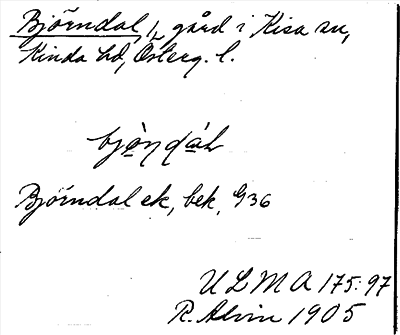 Björndal, 1/2 gård i Kisa sn,
Kinda hd, Österg. l.
bjò̱ṇda̱̍l
Björndal ek, bek, G36
ULMA 175:97
R. Alvin 1905